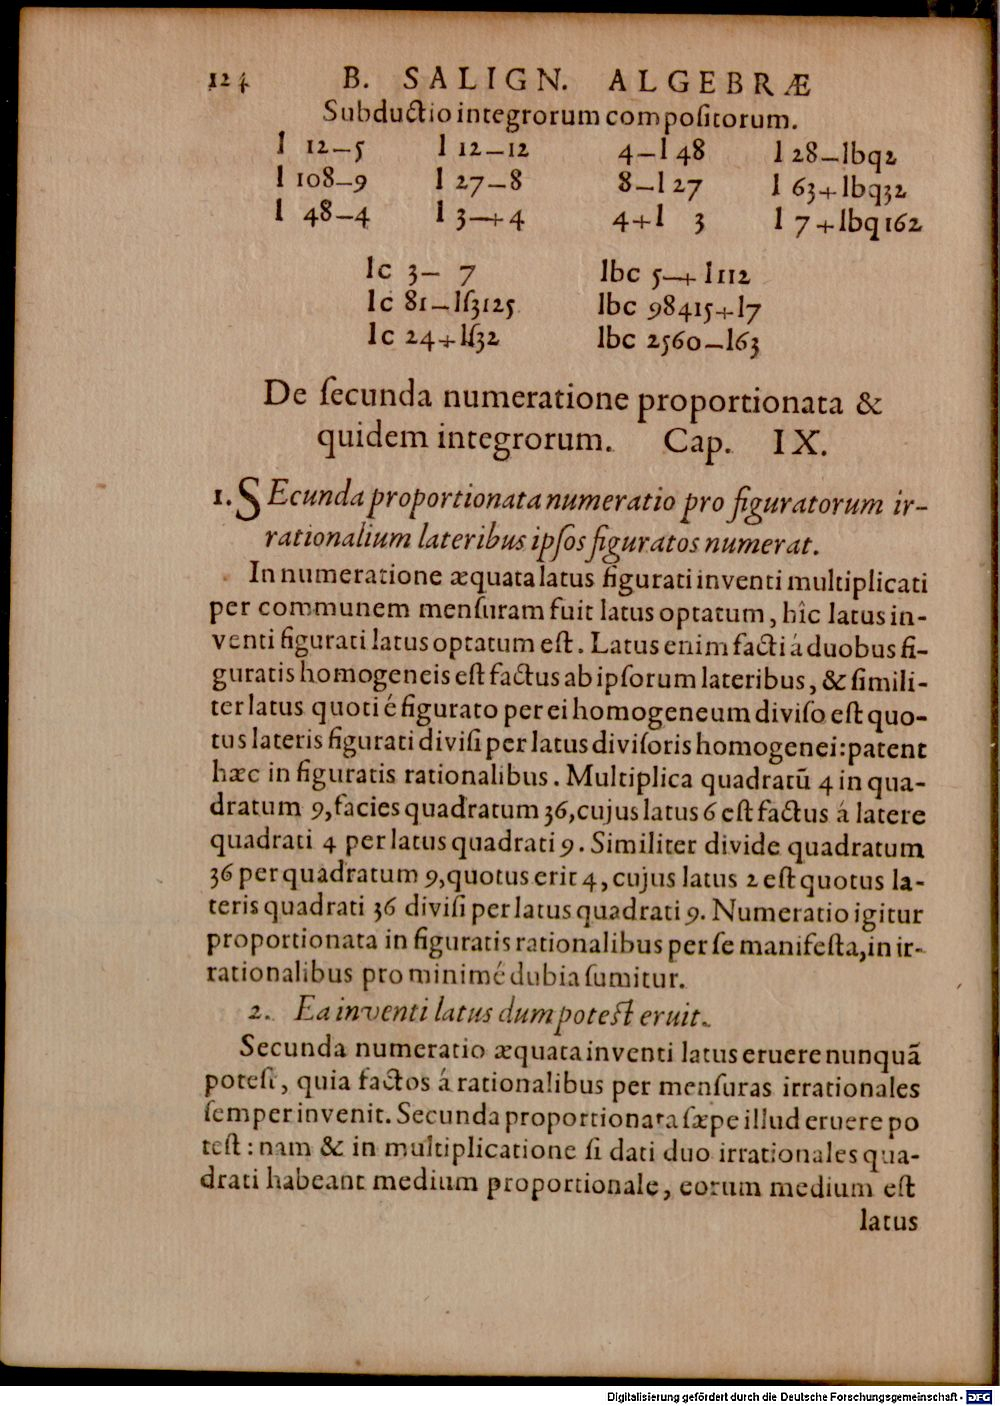 124 B. SALIGN. ALGEBRÆ
Subductio integrorum compoſitorum.
l 12–5 l 12–12 4–l 48 l 28–lbq2
l 108–9 l 27–8 8–l 27 l 63+lbq32
l 48–4 l 3–+4 4+l 3 l 7+lbq162
lc 3– 7 lbc 5–+l112
lc 81–lſ3125 lbc 98415+l7
lc 24+lſ32 lbc 2560–l63
De ſecunda numeratione proportionata &
quidem integrorum. Cap. IX.
1. SEcunda proportionata numeratio pro figuratorum ir-
rationalium lateribus ipſos figuratos numerat.
In numeratione æquata latus figurati inventi multiplicati
per communem menſuram fuit latus optatum, hîc latus in-
venti figurati latus optatum eſt. Latus enim facti á duobus fi-
guratis homogeneis eſt factus ab ipſorum lateribus, & ſimili-
ter latus quoti é figurato per ei homogeneum diviſo eſt quo-
tus lateris figurati diviſi per latus diviſoris homogenei: patent
hæc in figuratis rationalibus. Multiplica quadratū 4 in qua-
dratum 9, facies quadratum 36, cujus latus 6 eſt factus á latere
quadrati 4 per latus quadrati 9. Similiter divide quadratum
36 per quadratum 9, quotus erit 4, cujus latus 2 eſt quotus la-
teris quadrati 36 diviſi per latus quadrati 9. Numeratio igitur
proportionata in figuratis rationalibus per ſe manifeſta, in ir-
rationalibus pro minimé dubia ſumitur.
2. Ea inventi latus dum poteſt eruit.
Secunda numeratio æquata inventi latus eruere nunquā
poteſt, quia factos á rationalibus per menſuras irrationales
ſemper invenit. Secunda proportionata ſæpe illud eruere po
teſt: nam & in multiplicatione ſi dati duo irrationales qua-
drati habeant medium proportionale, eorum medium eſt
latus
Digitalisierung gefördert durch die Deutsche Forschungsgemeinschaft - DFG